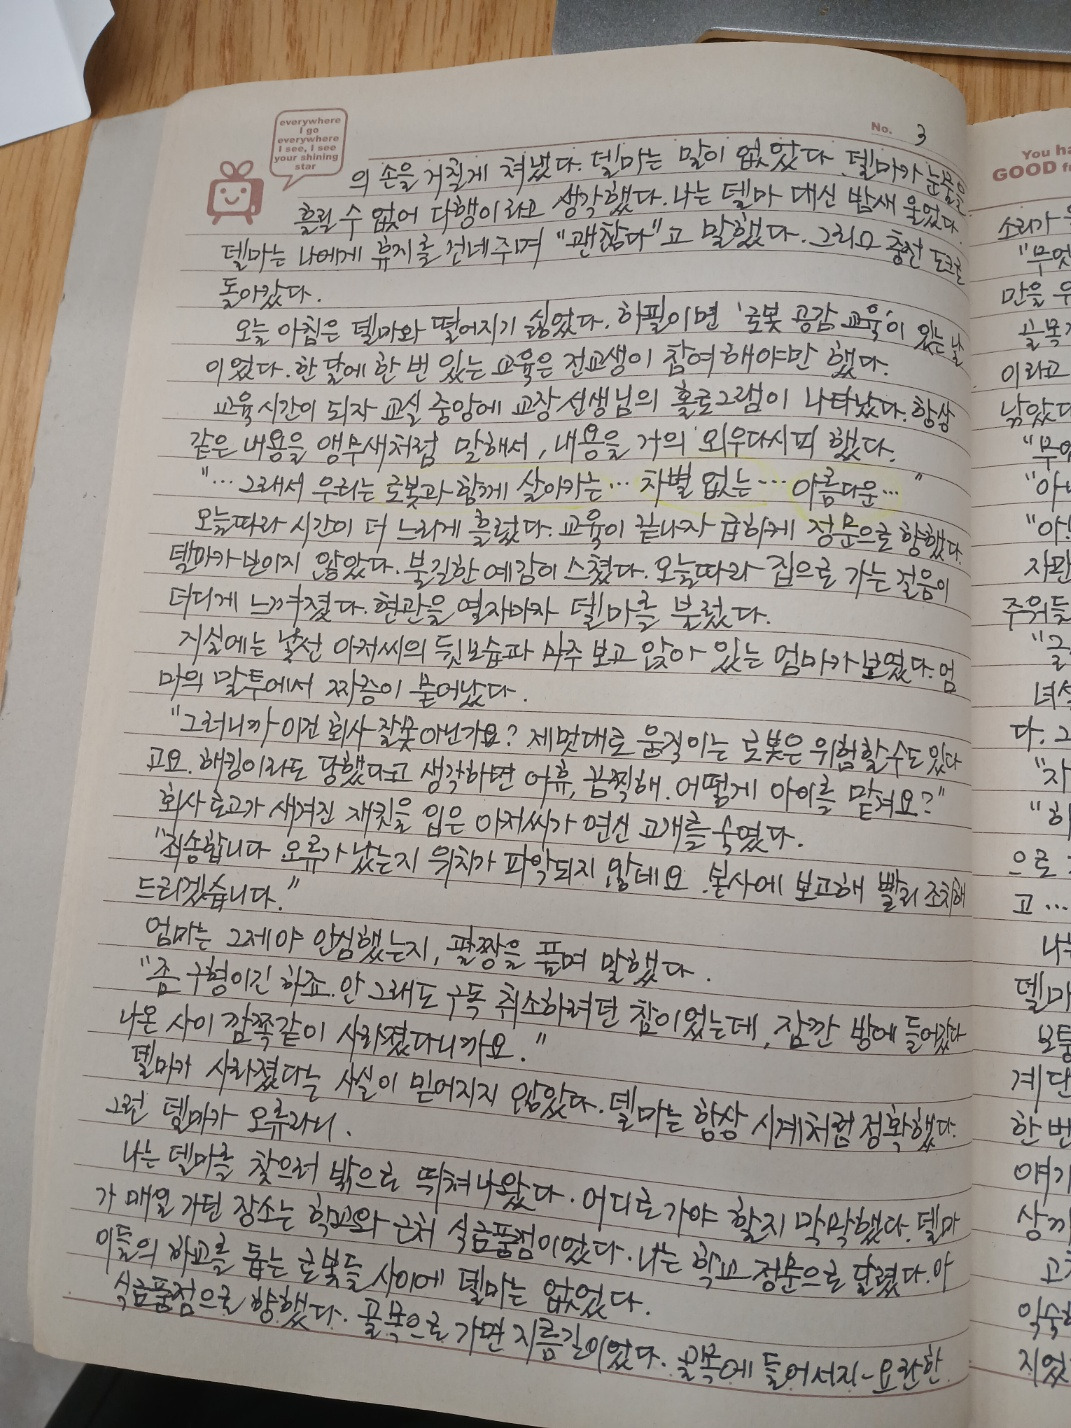 everywhere
I go
everywhere
I see, I see
your shining
star
No. 3
의 손을 거칠게 쳐냈다. 델마는 말이 없었다. 델마가 눈물을
흘릴 수 없어 다행이라고 생각했다. 나는 델마 대신 밤새 울었다.
델마는 나에게 휴지를 건네주며 "괜찮다"고 말했다. 그리고 충전 도크로
돌아갔다.
오늘 아침은 델마와 떨어지기 싫었다. 하필이면 '로봇 공감 교육'이 있는 날
이었다. 한 달에 한 번 있는 교육은 전교생이 참여해야만 했다.
교육시간이 되자 교실 중앙에 교장선생님의 홀로그램이 나타났다. 항상
같은 내용을 앵무새처럼 말해서, 내용을 거의 외우다시피 했다.
"…그래서 우리는 로봇과 함께 살아가는… 차별 없는… 아름다운…"
오늘따라 시간이 더 느리게 흘렀다. 교육이 끝나자 급하게 정문으로 향했다.
델마가 보이지 않았다. 불길한 예감이 스쳤다. 오늘따라 집으로 가는 걸음이
더디게 느껴졌다. 현관을 열자마자 델마를 불렀다.
거실에는 낯선 아저씨의 뒷모습과 마주 보고 앉아 있는 엄마가 보였다. 엄
마의 말투에서 짜증이 묻어났다.
"그러니까 이건 회사 잘못 아닌가요? 제멋대로 움직이는 로봇은 위험할수도 있다
고요. 해킹이라도 당했다고 생각하면 어휴, 끔찍해. 어떻게 아이를 맡겨요?"
회사 로고가 새겨진 재킷을 입은 아저씨가 연신 고개를 숙였다.
"죄송합니다 오류가 났는지 위치가 파악되지 않네요. 본사에 보고해 빨리 조치해
드리겠습니다."
엄마는 그제야 안심했는지, 팔짱을 풀며 말했다.
"좀 구형이긴 하죠. 안 그래도 구독 취소하려던 참이었는데, 잠깐 방에 들어갔다
나온 사이 감쪽같이 사라졌다니까요."
델마가 사라졌다는 사실이 믿어지지 않았다. 델마는 항상 시계처럼 정확했다.
그런 델마가 오류라니.
나는 델마를 찾으러 밖으로 뛰쳐나왔다. 어디로 가야 할지 막막했다. 델마
가 매일 가던 장소는 학교와 근처 식료품점이었다. 나는 학교 정문으로 달렸다. 아
이들의 하교를 돕는 로봇들 사이에 델마는 없었다.
식료품점으로 향했다. 골목으로 가면 지름길이었다. 골목에 들어서자 요란한
You ha
GOOD
소리가
"무엇
만을
골목
이라고
낡았다
"무
"아
"아
자판
주위를
"글
녀석
다. 그
"자
"하
으로
고…
나는
델마
모퉁
계단
한 번
얘기
상기
고
익숙
지었